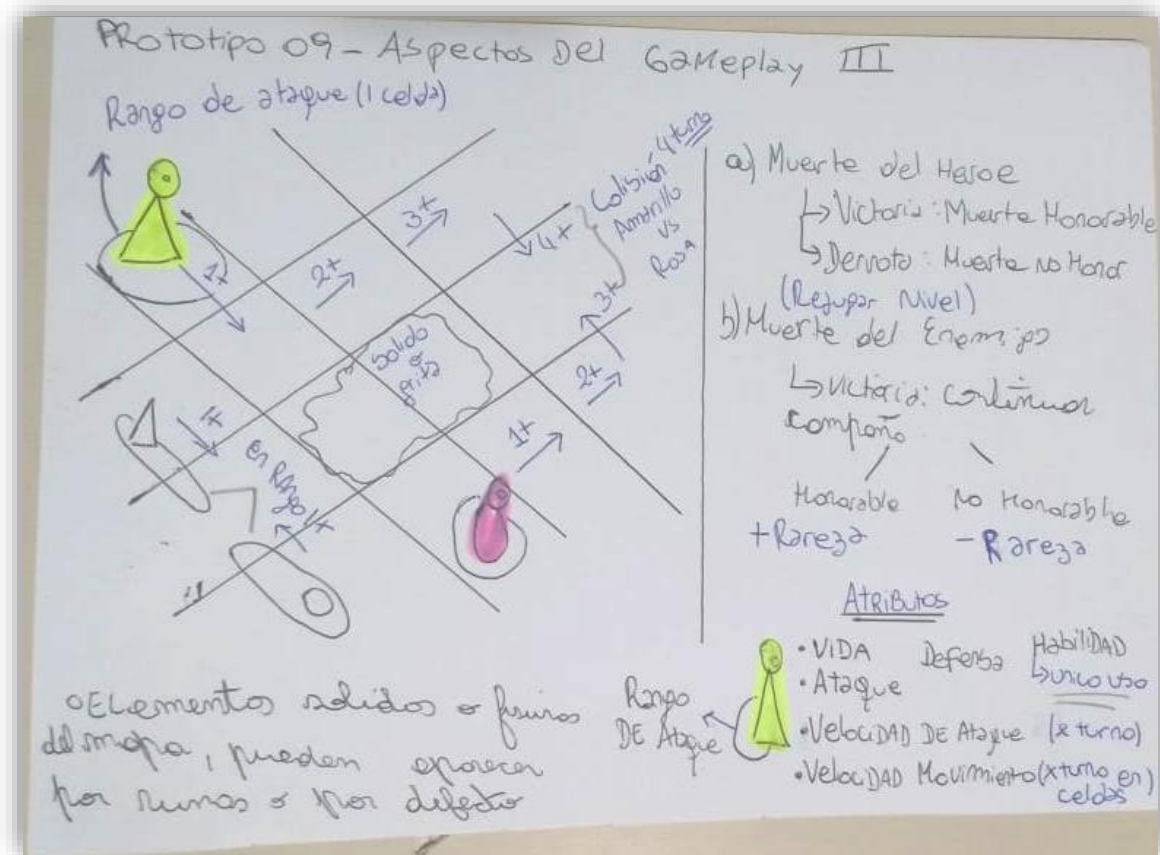 PRototipo 09 - Aspectos Del Gameplay III
Rango de ataque (1 celda)
1t
2t
3t
4t
Colisión 4turno
Amarillo
vs
Rosa
3t
2t
1t
Solido
o
1t
en Rango 1t
a) Muerte del Heroe
↳ Victoria : Muerte Honorable
↳ Derrota : Muerte No Honor
(Rejugar Nivel)
b) Muerte del Enemigo
↳ Victoria : Continuar
Campaña
Honorable
No Honorable
+ Rareza
- Rareza
ATRIBUTOS
• VIDA Defensa HabiliDAD
↳ unico uso
• Ataque
• VelociDAD DE Ataque (x turno)
• VelociDAD Movimiento (x turno en)
celdas
Rango
DE Ataque
o ELementos solidos o
del mapa, pueden aparecer
por runas o por defecto